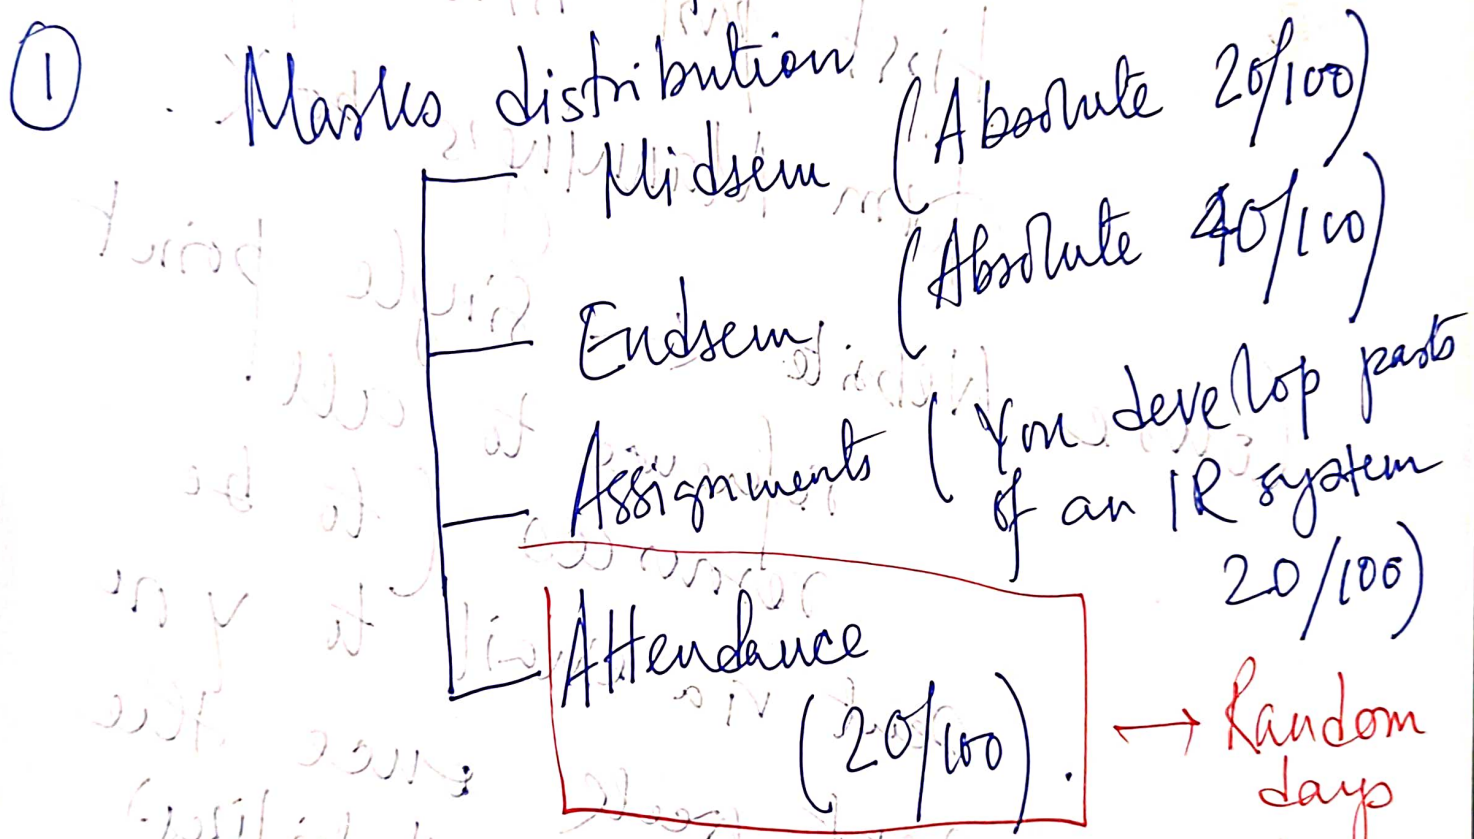 ① Marks distribution
Midsem (Absolute 20/100)
Endsem (Absolute 40/100)
Assignments (You develop parts
of an IR system
20/100)
Attendance
(20/100). → Random
days